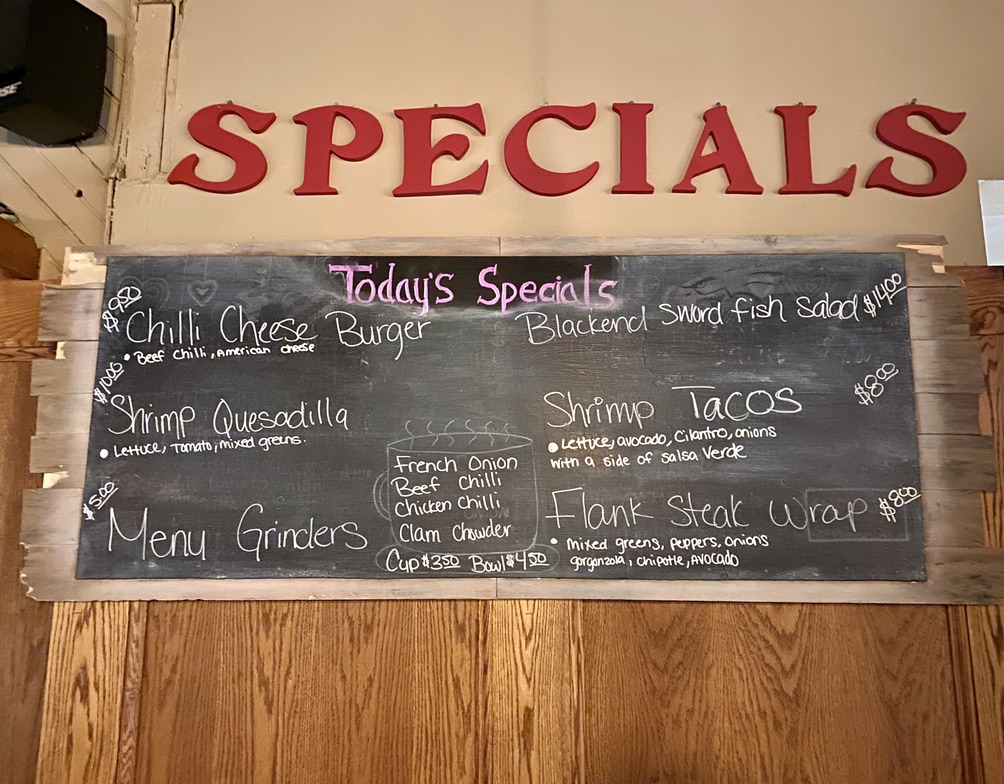 SPECIALS
Today's Specials
$9.50
Chilli Cheese Burger
• Beef Chilli, American cheese
$10.00
Shrimp Quesadilla
• Lettuce, Tomato, mixed greens.
$5.00
Menu Grinders
French Onion
Beef Chilli
Chicken Chilli
Clam Chowder
Cup $3.50 Bowl $4.50
Blackend Sword fish Salad $14.00
Shrimp Tacos $8.00
• Lettuce, avocado, Cilantro, onions
with a side of salsa verde
Flank Steak Wrap $8.00
• mixed greens, peppers, onions
gorganzola, chipotle, AVOCADO